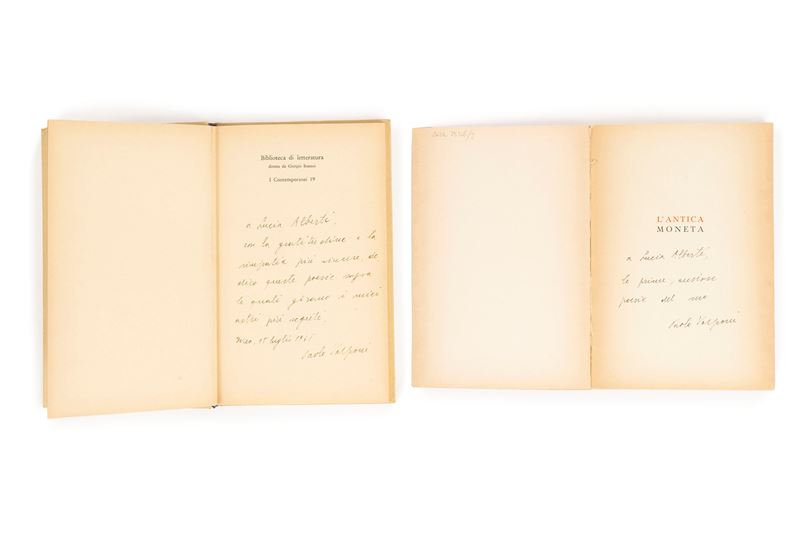 Biblioteca di letteratura
diretta da Giorgio Bassani
I Contemporanei 19
a Lucia Alberti,
con la gratitudine e la
simpatia più sincere, de
dico queste poesie sopra
le quali girano i miei
astri più segreti.
15 luglio
Paolo Volponi
L'ANTICA
MONETA
a Lucia Alberti,
le prime, ansiose
poesie del suo
Paolo Volponi